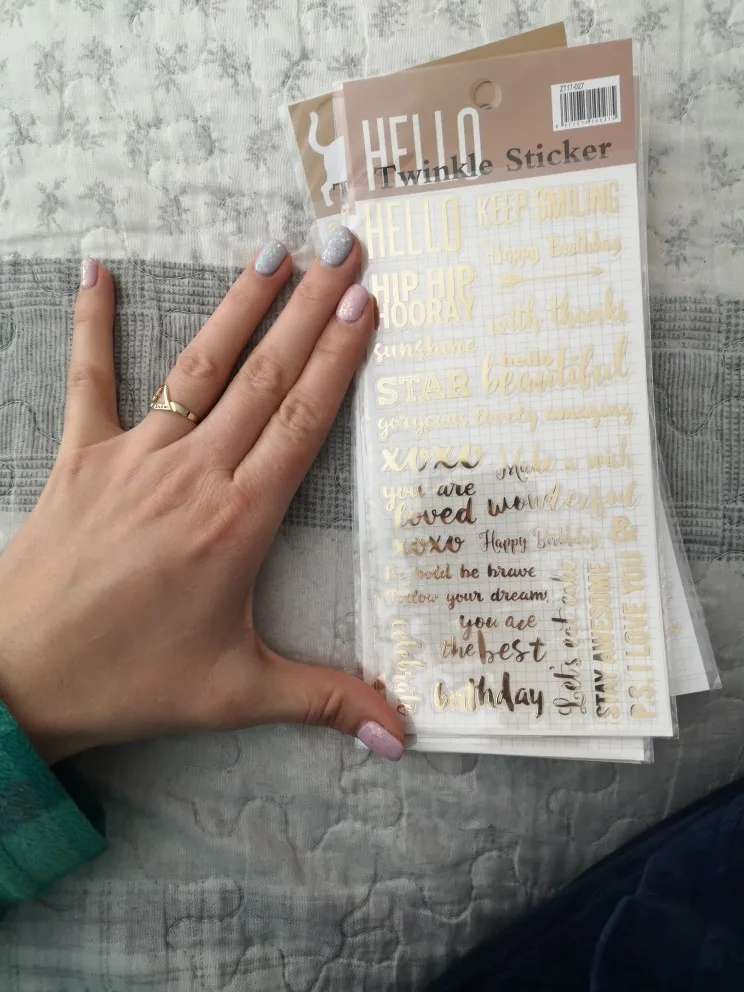 ZT17-027
HELLO
Twinkle Sticker
HELLO
KEEP SMILING
Happy Birthday
HIP HIP
HOORAY
with thanks
sunshine
hello
STAR
beautiful
gorgeous lovely amazing
xoxo
Make a wish
you are
loved
wonderful
xoxo
Happy Birthday
&
Be bold be brave
Follow your dreams
you are
the best
celebrate
birthday
Let's eat cake
STAY AWESOME
P.S. I LOVE YOU